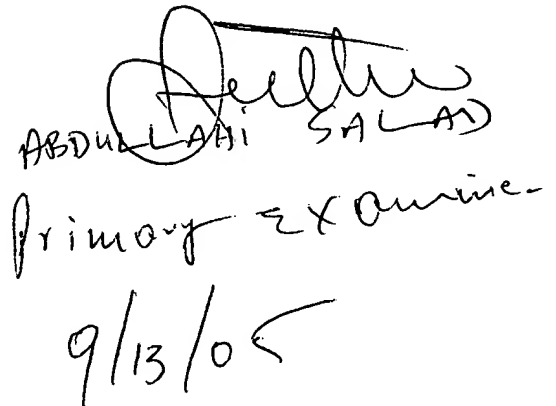 ABDULLAHI SALAD
Primary Examine
9/13/05